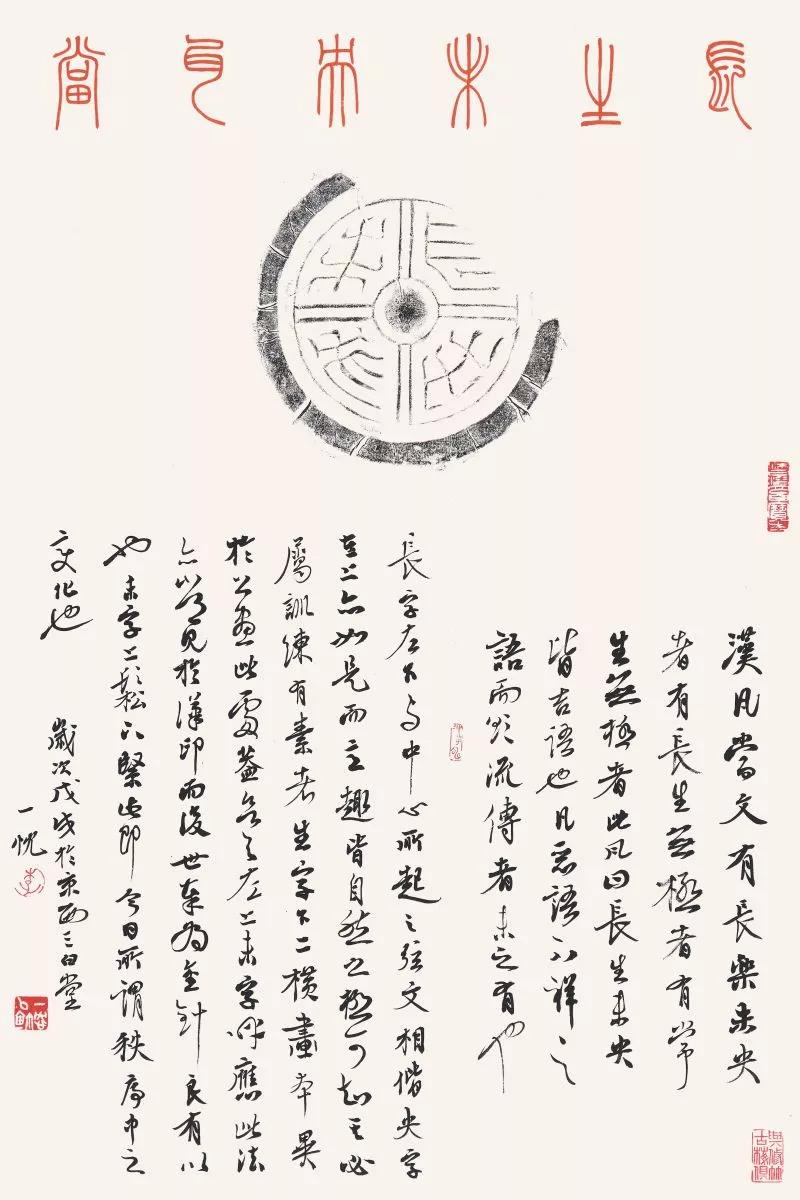 長生未央瓦當
長生未央
漢瓦當文有長樂未央
者有長生無極者有常
生無極者此瓦曰長生未央
皆吉語也凡惡語不祥之
語而流傳者未之有也
長字左下与中心所起之弦文相偕央字
直上亦如是而主趣皆自然之極可知其必
屬訓練有素者生字下二横畫本異
於此處蓋欲与左上未字呼應此法
亦習見於漢印而後世奉為金針良有以
也未字上鬆下緊此即今日所謂秩序中之
變化也
歲次戊戌於京西三白堂
一忱